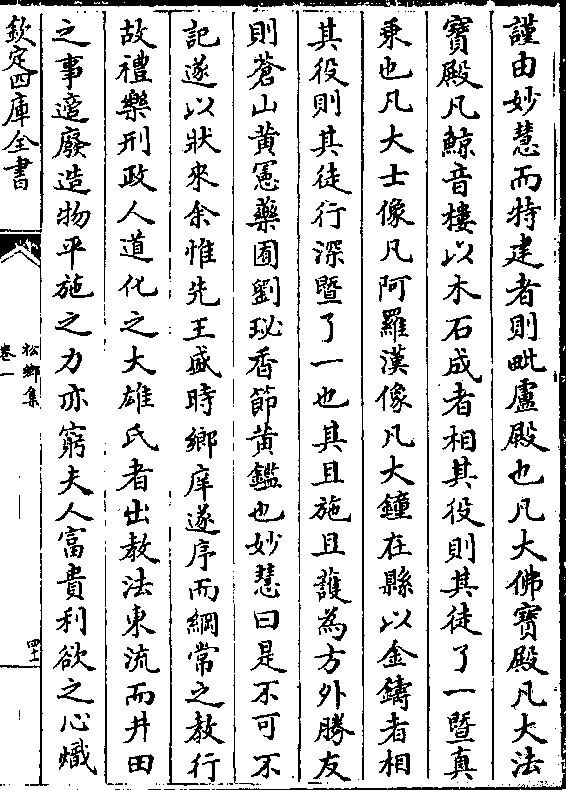 謹由妙慧而特建者則毗盧殿也凡大佛寶殿凡大法
寶殿凡鯨音樓以木石成者相其役則其徒了一暨真
乗也凡大士像凡阿羅漢像凡大鐘在縣以金鑄者相
其役則其徒行深暨了一也其且施且護為方外勝友
則蒼山黄憲藥囿劉珌香節黄鑑也妙慧曰是不可不
記遂以狀來余惟先王盛時鄉庠遂序而綱常之教行
故禮樂刑政人道化之大雄氏者出教法東流而井田
之事遂廢造物平施之力亦窮夫人富貴利欲之心熾
欽定四庫全書
松鄉集
卷一
四十